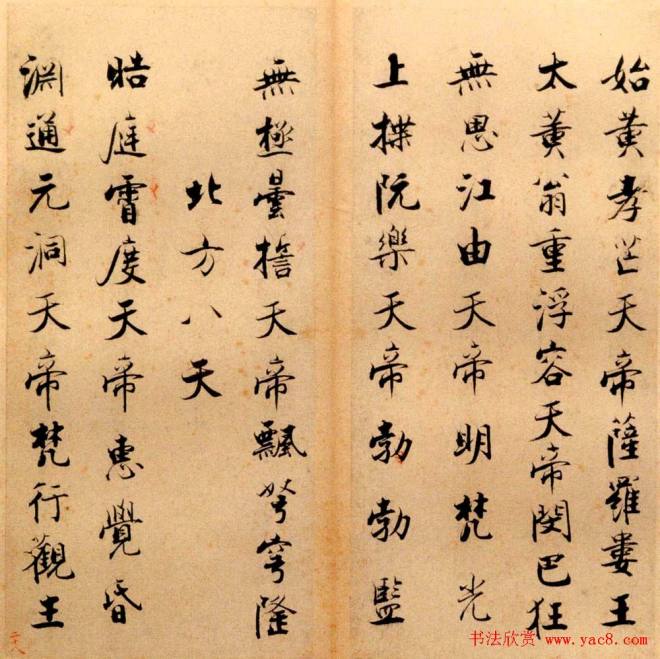 始黄孝芒天帝薩羅婁王
太黄翁重浮容天帝閔巴狂
無思江由天帝明梵光
上揲阮樂天帝勃勃監
無極曇誓天帝飄弩穹隆
北方八天
皓庭霄度天帝惠覺昏
淵通元洞天帝梵行觀生
二八
书法欣赏 www.yac8.com